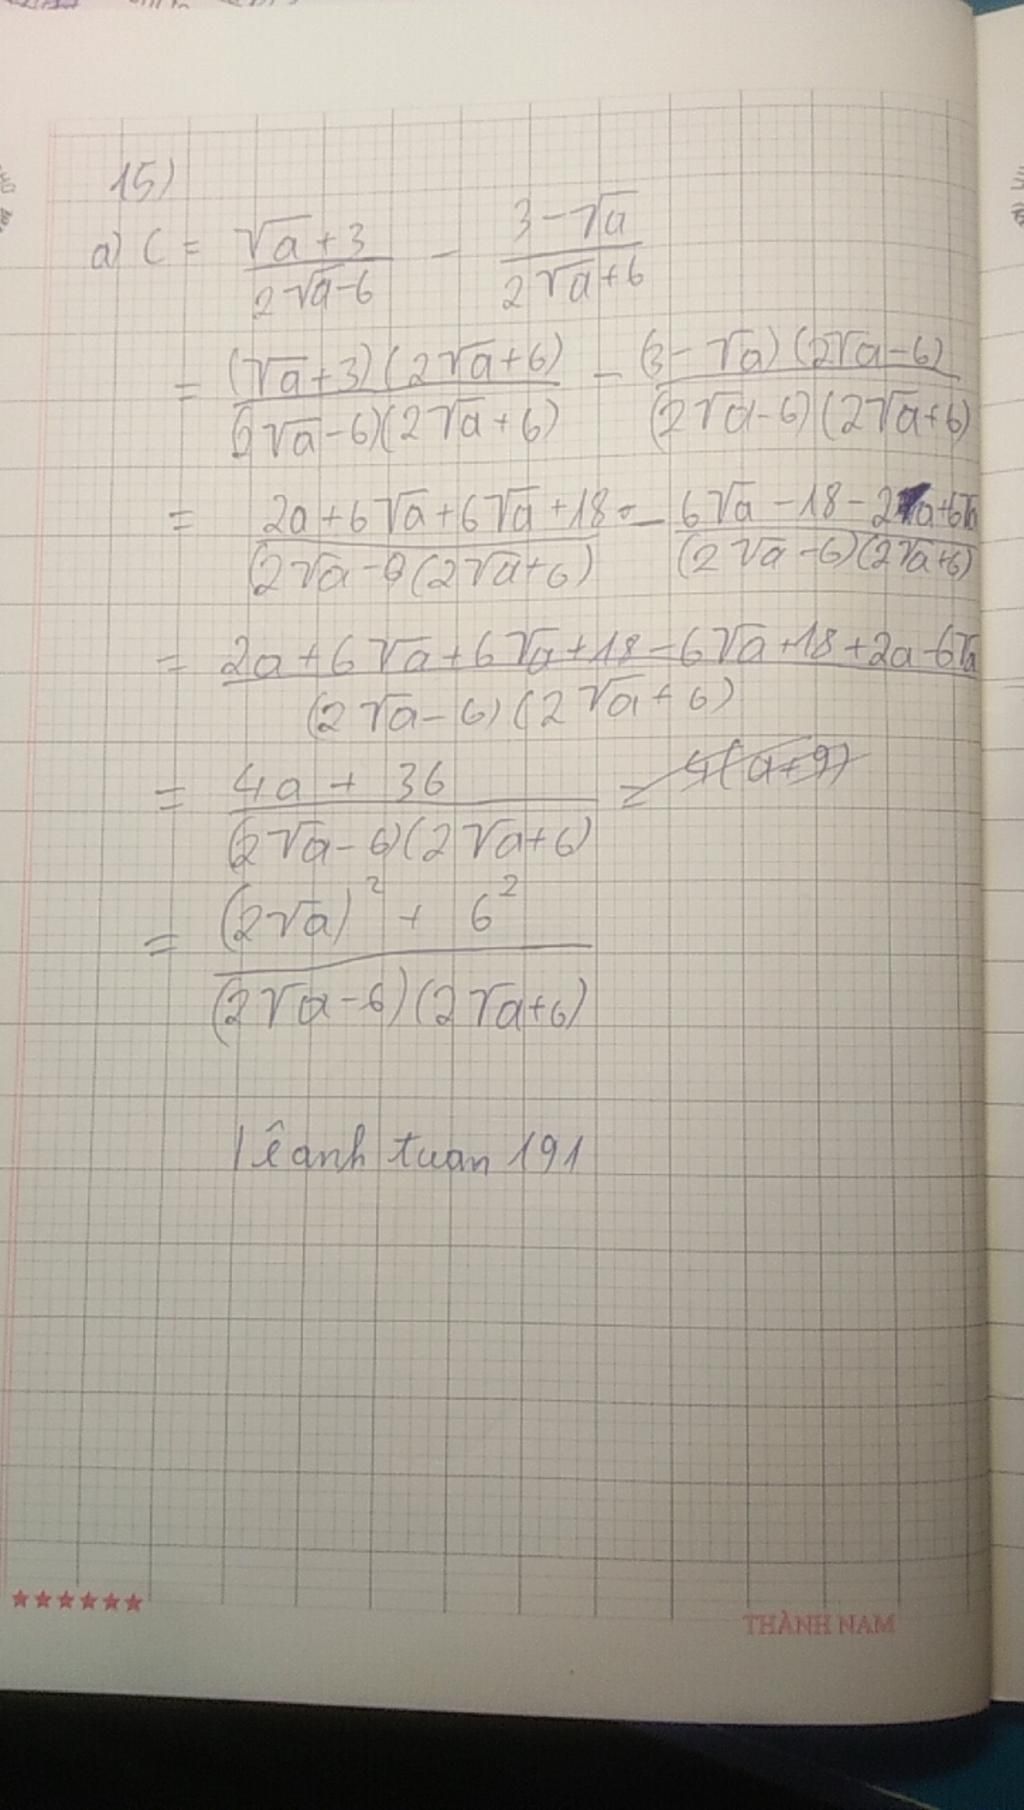 15)
a) C = (√a + 3)/(2√a - 6) - (3 - √a)/(2√a + 6)
= (√a + 3)(2√a + 6)/(2√a - 6)(2√a + 6) - (3 - √a)(2√a - 6)/(2√a - 6)(2√a + 6)
= 2a + 6√a + 6√a + 18/(2√a - 6(2√a + 6) - 6√a - 18 - 2a + 6√a/(2√a - 6)(2√a + 6)
= 2a + 6√a + 6√a + 18 - 6√a + 18 + 2a - 6√a/(2√a - 6)(2√a + 6)
= 4a + 36/(2√a - 6)(2√a + 6) = 4(a + 9)
= (2√a)² + 6²/(2√a - 6)(2√a + 6)
lê anh tuan 191
★★★★★★ THÀNH NAM